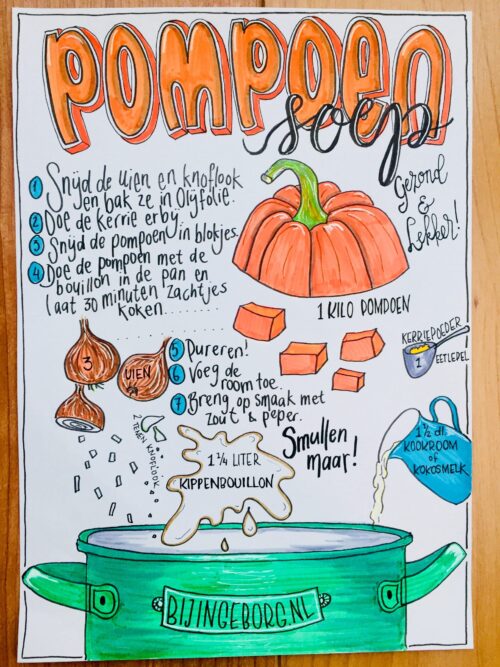 POMPOEN
soep
Gezond
&
Lekker!
1 Snijd de uien en knoflook
en bak ze in Olijfolie.
2 Doe de kerrie erby.
3 Snijd de pompoen in blokjes.
4 Doe de pompoen met de
bouillon in de pan en
laat 30 minuten zachtjes
koken...........
1 KILO POMPOEN
KERRIEPOEDER
1 EETLEPEL
3
UIEN
5 Pureren!
6 Voeg de
room toe.
7 Breng op smaak met
zout & peper.
2 TENEN KNOFLOOK
1 3/4 LITER
KIPPENBOUILLON
Smullen
maar!
1 1/2 dl.
KOOKROOM
OF
KOKOSMELK
BIJINGEBORG.NL